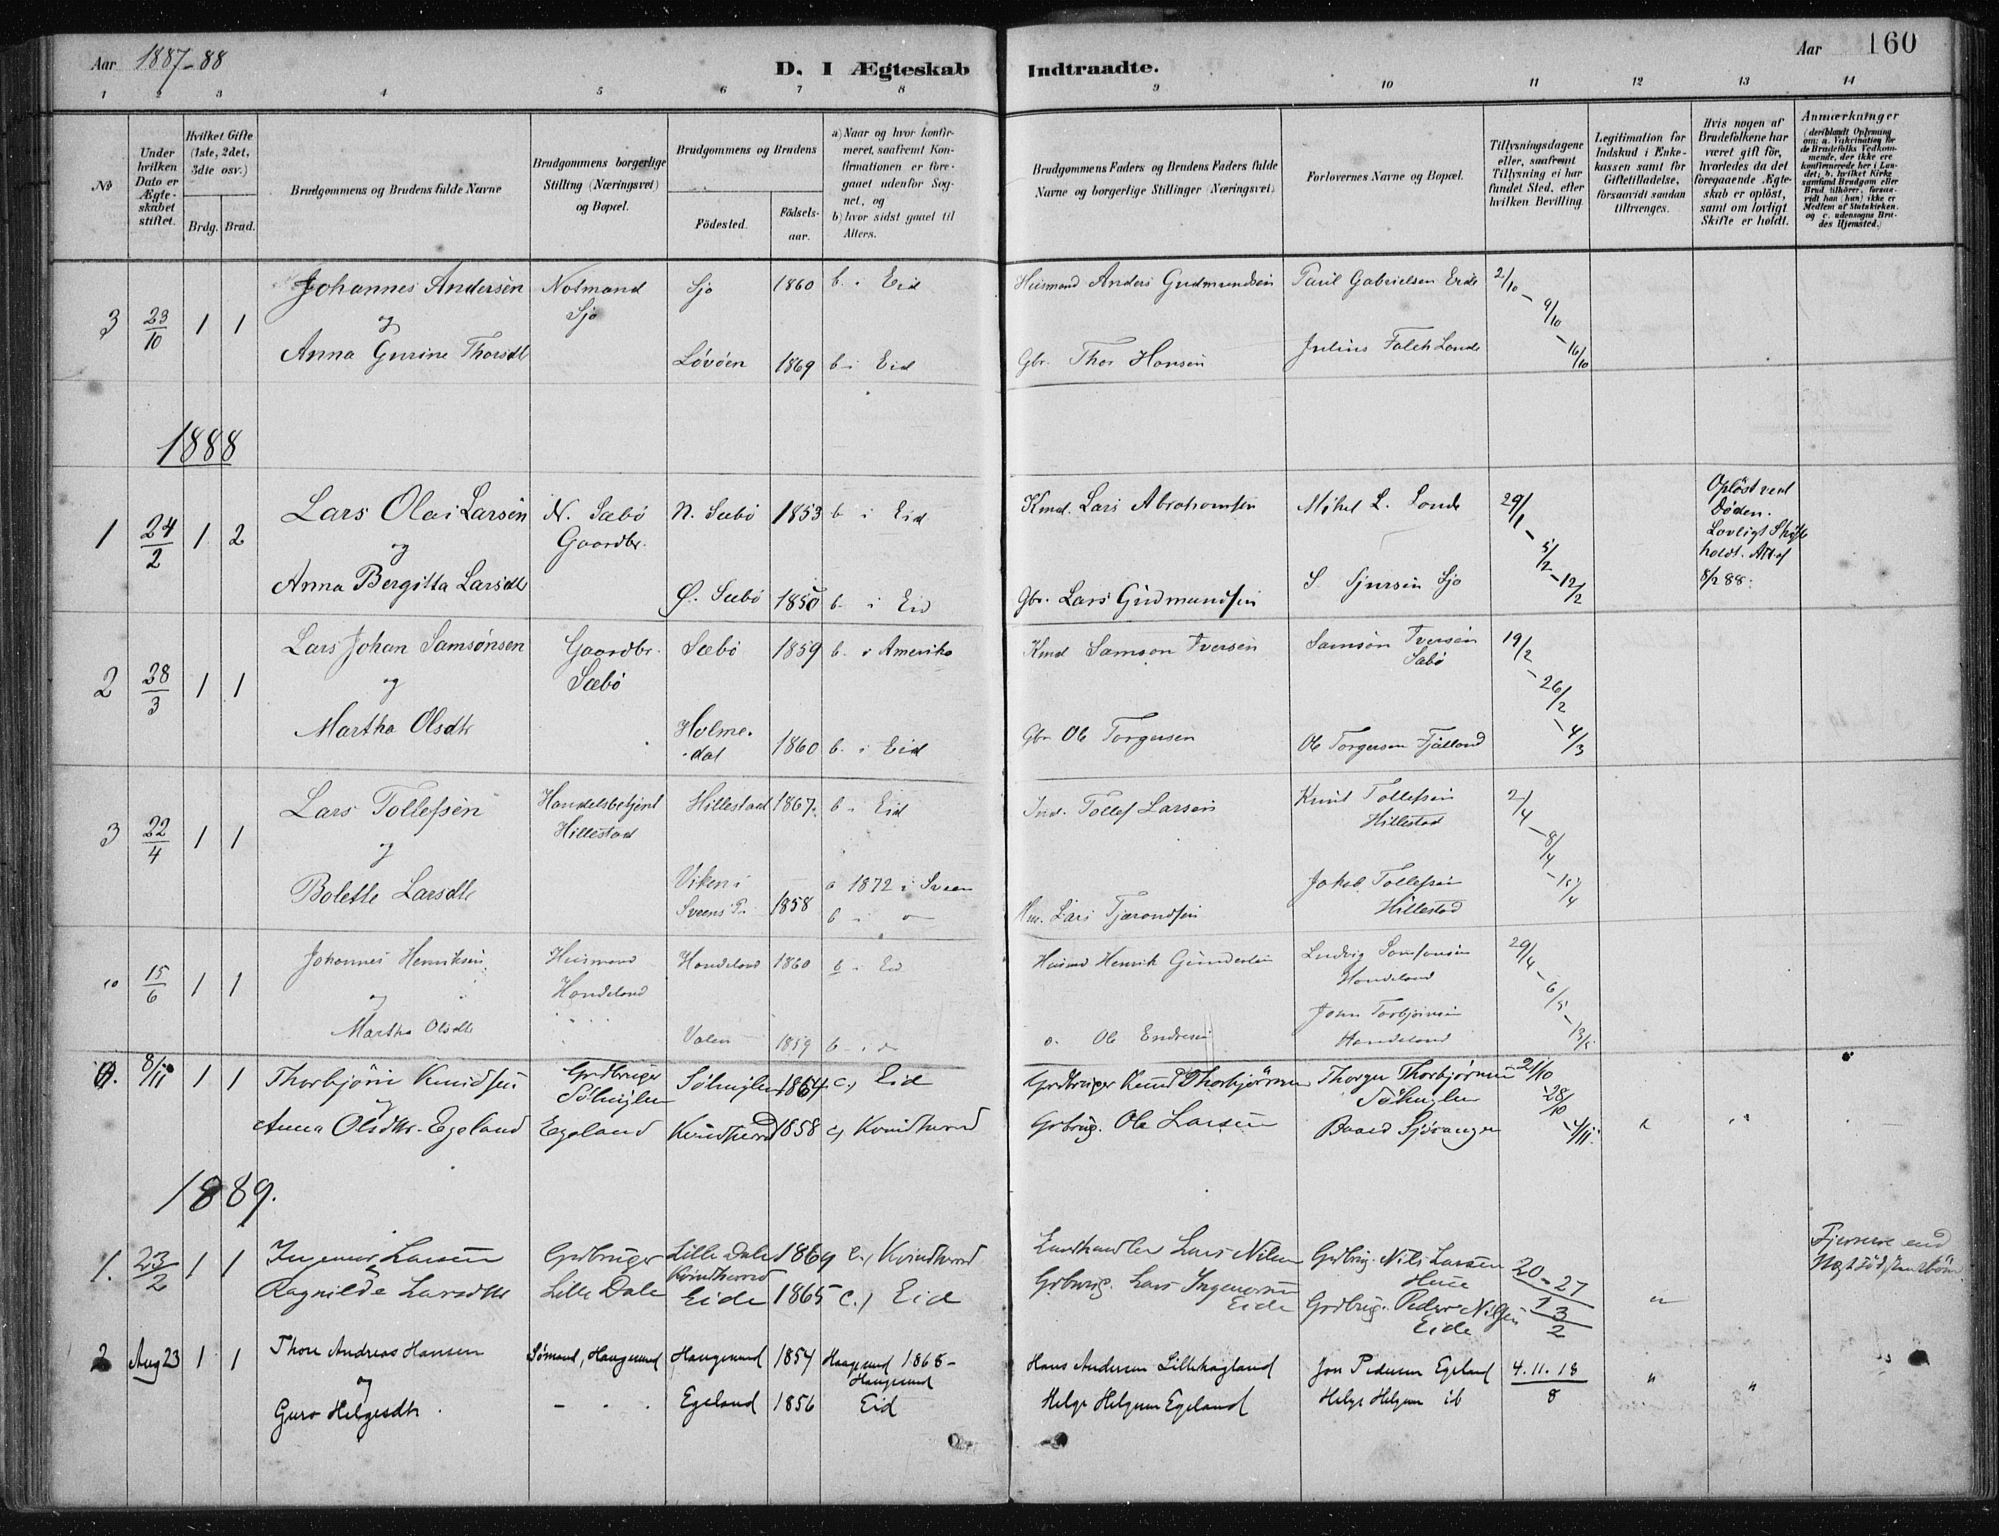 Aar 1887-88
D. I Ægteskab Indtraadte.
Aar 160
1 2 3 4 5 6 7 8 9 10 11 12 13 14
No
Under hvilken Dato er Ægteskabet stiftet.
Hvilket Gifte (1ste, 2det, 3die osv.)
Brdg. Brud.
Brudgommens og Brudens fulde Navne
Brudgommens borgerlige Stilling (Næringsvei) og Bopæl.
Brudgommens og Brudens
Födested.
Födselsaar.
a) Naar og hvor konfirmeret, saafremt Konfirmationen er foregaaet udenfor Sognet, og
b) hvor sidst gaaet til Alters.
Brudgommens Faders og Brudens Faders fulde Navne og borgerlige Stillinger (Næringsvei)
Forlovernes Navne og Bopæl.
Tillysningsdagene eller, saafremt Tillysning ei har fundet Sted, efter hvilken Bevilling.
Legitimation for Indskud i Enkekassen samt for Giftetilladelse, forsaavidt saadan tiltrænges.
Hvis nogen af Brudefolkene har været gift för, hvorledes da det foregaaende Ægteskab er oplöst, samt om lovligt Skifte er holdt.
Anmærkninger
(deriblandt Oplysning om: a. Vakcination for de Brudefolks Vedkommende, der ikke ere konfirmerede her i Landet; b. hvilket Kirkesamfund Brudgom eller Brud tilhörer, forsaavidt han (hun) ikke er Medlem af Statskirken, og c. udensogns Brudes Hjemsted.)
3 23/10 1 1 Johannes Andersen Notmand Sjo 1860 b. i Eid Husmand Anders Gudmundsen Paul Gabrielsen Eide 2/10
og Sjo - 9/10
Anna Gurine Thorsdt Løvöen 1869 b. i Eid Gbr. Thor Hansen Julius Falch Lande - 16/10
1888
1 24/2 1 2 Lars Olai Larsen N. Sæbö N. Sæbö 1853 b. i Eid Kmd. Lars Abrahamsen Mikel L. Lande 29/1 Oplöst ved Döden. Lovligt Skifte holdt. Att af 8/2 88.
og Gaardbr. - 5/2
Anna Bergitta Larsdt Ø. Sæbö 1850 b. i Eid Gbr. Lars Gudmundsen S Sjursen Sjo - 12/2
2 28/3 1 1 Lars Johan Samsonsen Gaardbr. Sæbö 1859 b. i Amerika Kmd Samson Iversen Samson Iversen Sæbö 19/2
og Sæbö - 26/2
Martha Olsdtr Holmedal 1860 b. i Eid Gbr Ole Torgersen Ole Torgersen Fjælland - 4/3
3 22/4 1 1 Lars Tollefsen Handelsbetjent Hillestad 1867 b. i Eid Ind. Tollef Larsen Knut Tollefsen Hillestad 2/4
og Hillestad - 8/4
Bolette Larsdt Viken i Sveens P. 1858 a 1872 i Sveen b. i Lars Tjerandsen Jakob Tollefsen Hillestad - 15/4
15/6 1 1 Johannes Henriksen Husmand Handeland 1860 b. i Eid Husmd Henrik Gundersen Ludvig Samsonsen Handeland 29/4
og Handeland - 6/5
Martha Olsdt Valen 1859 b. i do Ole Endresen John Torbjörnsen Handeland - 13/5
8/11 1 1 Thorbjörn Knudsen Grdbruger Sölhuglen 1864 c) Eid Grdbruger Knud Thorbjörnsen Thorger Thorbjørnsen Sölhuglen 21/10
og Sölhuglen - 28/10
Anna Olsdtr. Egeland Egeland Kvindherred 1858 c) Kvindherred Grbrug. Ole Larsen Baard Sjövangen - 4/11 " "
1889.
1. 23/2 1 1 Ingemar Larsen Grdbruger Lille Dale Kvindherred 1869 c.) Kvindherred Landhandler Lars Nilsen Grdbrug. Nils Larsen
og
Ragnilde Larsdtr Lille Dale Eide 1865 c.) Eid Grbrug. Lars Ingemarsen Eide Grdbrug. Peder Nilsen Eide 20-27/1 3/2 "
2 Aug 23 1 1 Thore Andreas Hansen Sömand, Haugesund Haugesund 1854 Haugesund 1868 - Haugesund Hans Andersen Lillehagland Jon Pedersen Egeland 4.11.18/8 " "
og
Guro Helgesdtr. - . . Egeland 1856 Eid Helge Helgesen Egeland Helge Helgesen ib